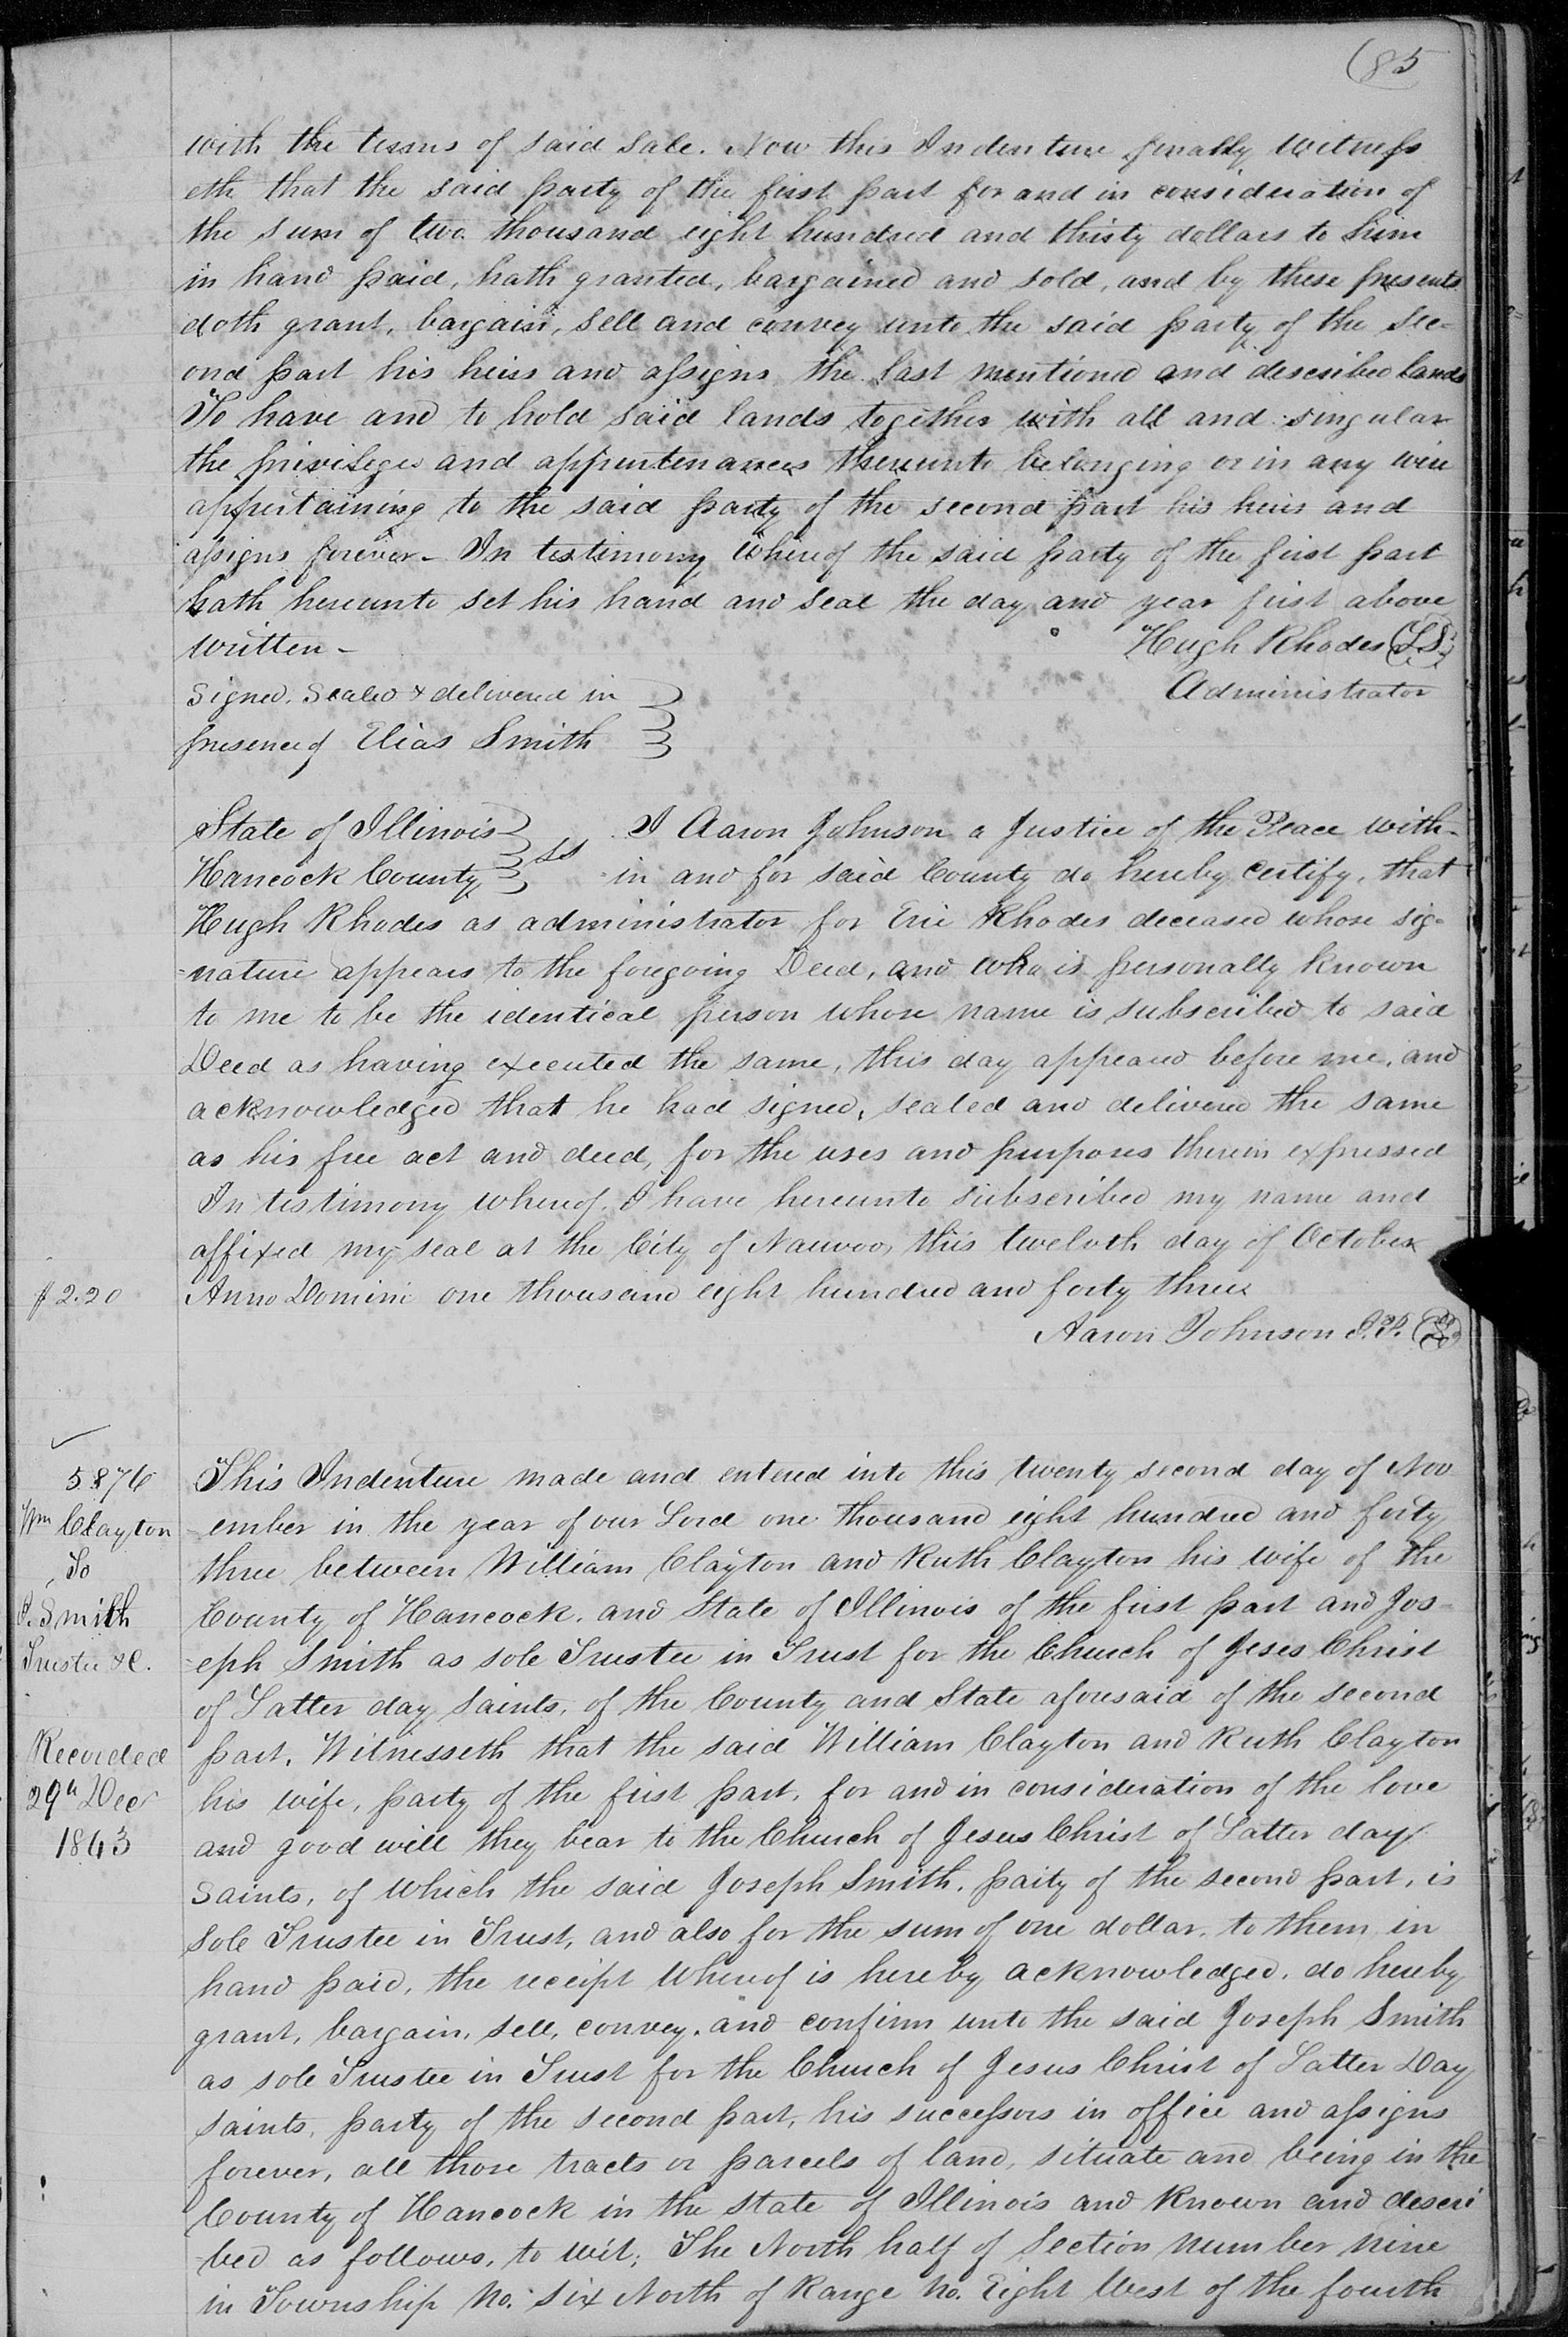 (85
with the terms of said sale. Now this Indenture finally witness
eth that the said party of the first part for and in consideration of
the sum of two thousand eight hundred and thirty dollars to him
in hand paid, hath granted, bargained and sold, and by these presents
doth grant, bargain, sell and convey unto the said party of the sec-
ond part his heirs and assigns the last mentioned and described lands
To have and to hold said lands together with all and singular
the privileges and appurtenances thereunto belonging or in any wise
appertaining to the said party of the second part his heirs and
assigns forever - In testimony whereof the said party of the first part
hath hereunto set his hand and seal the day and year first above
written - Hugh Rhodes (LS)
Signed, Sealed & delivered in Administrator
presence of Elias Smith
State of Illinois I Aaron Johnson a Justice of the Peace with-
Hancock County ss in and for said County do hereby certify, that
Hugh Rhodes as administrator for Eric Rhodes deceased whose sig-
nature appears to the foregoing Deed, and who is personally known
to me to be the identical person whose name is subscribed to said
Deed as having executed the same, this day appeared before me, and
acknowledged that he had signed, sealed and delivered the same
as his free act and deed, for the uses and purposes therein expressed
In testimony whereof, I have hereunto subscribed my name and
affixed my seal at the City of Nauvoo, this twelvth day of October
$2.20 Anno Domini one thousand eight hundred and forty three
Aaron Johnson J.P. (LS)
5876 This Indenture made and entered into this twenty second day of Nov
Wm Clayton ember in the year of our Lord one thousand eight hundred and forty
To three between William Clayton and Ruth Clayton his wife of the
J. Smith County of Hancock, and State of Illinois of the first part and Jos-
Trustee &c. eph Smith as sole Trustee in Trust for the Church of Jeses Christ
of Latter day Saints, of the County and State aforesaid of the second
Recorded part, Witnesseth that the said William Clayton and Ruth Clayton
29th Decr his wife, party of the first part, for and in consideration of the love
1843 and good will they bear to the Church of Jesus Christ of Latter day
Saints, of which the said Joseph Smith, party of the second part, is
Sole Trustee in Trust, and also for the sum of one dollar, to them in
hand paid, the receipt whereof is hereby acknowledged, do hereby
grant, bargain, sell, convey, and confirm unto the said Joseph Smith
as sole Trustee in Trust for the Church of Jesus Christ of Latter Day
saints, party of the second part, his successors in office and assigns
forever, all those tracts or parcels of land, situate and being in the
County of Hancock in the State of Illinois and known and descri
bed as follows, to wit; The North half of Section number nine
in Township No. six North of Range No. Eight West of the fourth